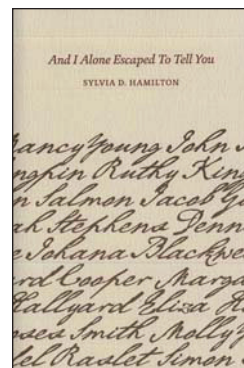 And I Alone Escaped To Tell You
SYLVIA D. HAMILTON
Nancy Young John
Ruthy King
n Salmon Jacob G
ah Stephens Denn
e Johana Blackwe
rd Cooper Marga
Hallyard Eliza
oses Smith Molly
el Raslet Simon